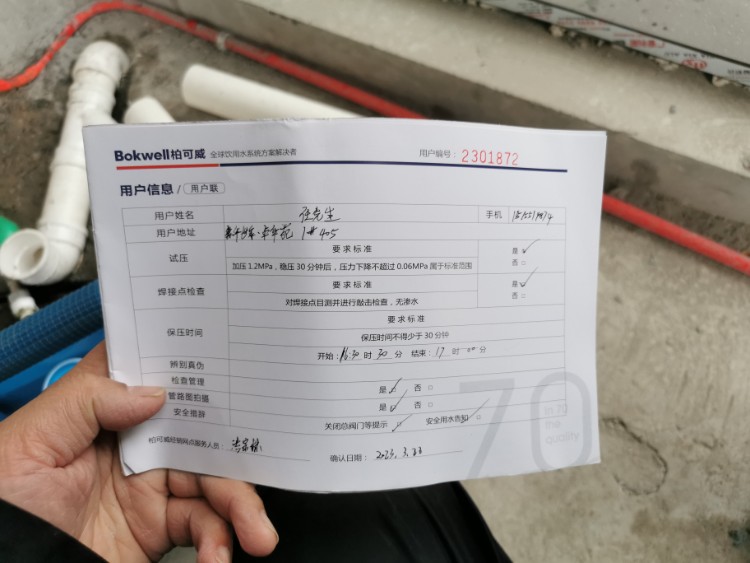 Bokwell柏可威 全球饮用水系统方案解决者 用户编号：2301872
用户信息 / 用户联
用户姓名 任先生 手机
用户地址 1#405
试压 要求标准 是 ✓
加压1.2MPa，稳压30分钟后，压力下降不超过0.06MPa属于标准范围 否 □
焊接点检查 要求标准 是 ✓
对焊接点目测并进行敲击检查，无渗水 否 □
保压时间 要求标准
保压时间不得少于30分钟
开始：16:30 时 30 分 结束：17 时 00 分
辨别真伪
检查管理 是 ✓ 否 □
管路图拍摄 是 ✓ 否 □
安全措辞 关闭总阀门等提示 ✓ 安全用水告知 ✓
柏可威经销网点服务人员： 确认日期：2023.3.23
70
in 70
the
quality